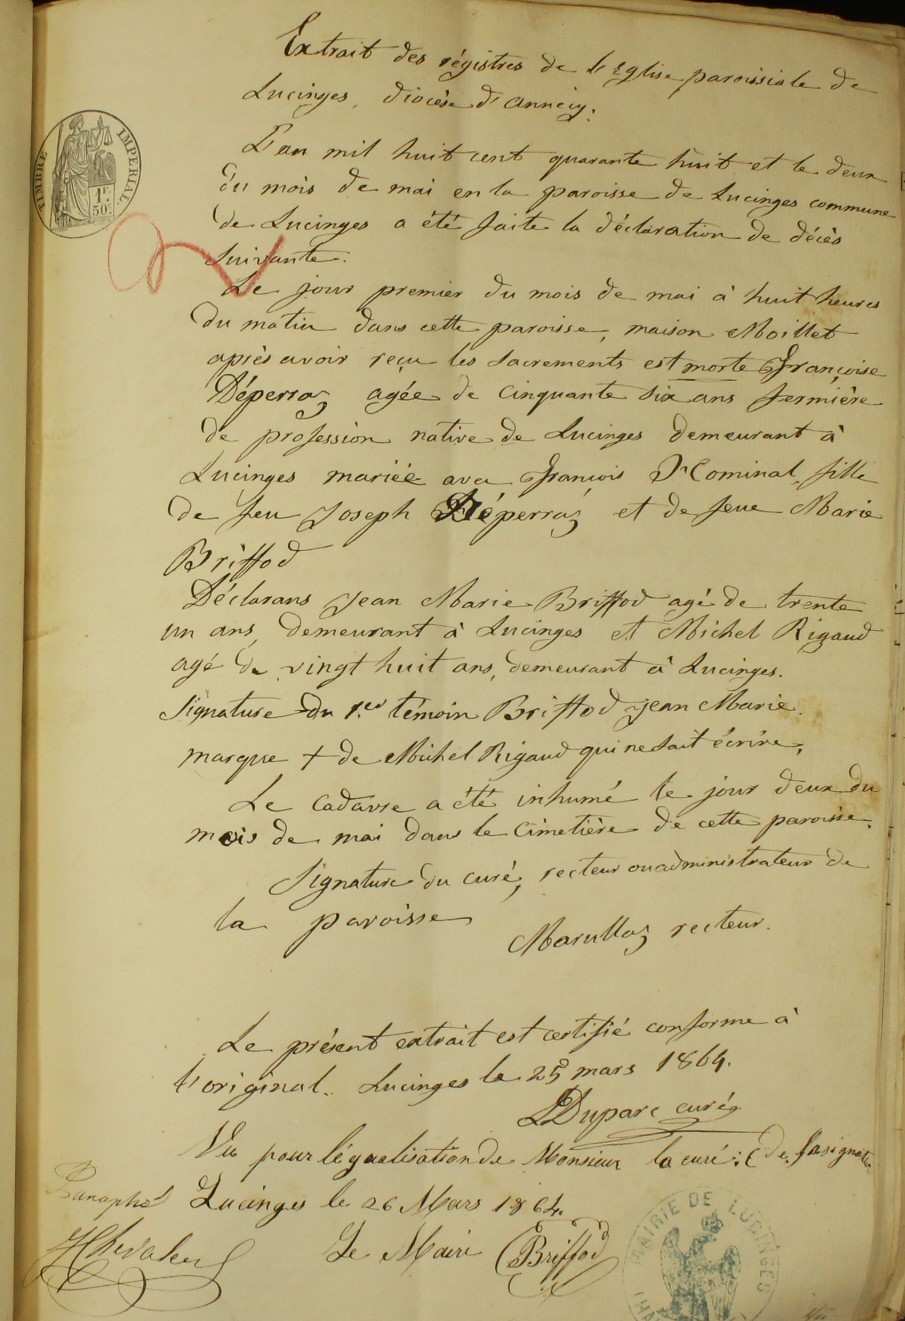 Extrait des régistres de l'Eglise paroissiale de
Lucinges, diocèse d'annecy.
TIMBRE IMPERIAL
1F 50c
L'an mil huit cent quarante huit et le deux
du mois de mai en la paroisse de Lucinges commune
de Lucinges a été faite la déclaration de décès
suivante.
Le jour premier du mois de mai à huit heures
du matin dans cette paroisse, maison Moillet
après avoir reçu les sacrements est morte Françoise
Déperraz agée de cinquante six ans fermière
de profession native de Lucinges demeurant à
Lucinges mariée avec François D'Cominal, fille
de feu Joseph Déperraz et de feue Marie
Briffod
Déclarans Jean Marie Briffod agé de trente
un ans, demeurant à Lucinges et Michel Rigaud
agé de vingt huit ans, demeurant à Lucinges.
Signature du 1.er témoin Briffod Jean Marie.
marque + de Michel Rigaud qui ne sait écrire,
Le cadavre a été inhumé le jour deux du
mois de mai dans le cimetière de cette paroisse.
Signature du curé, recteur ou administrateur de
la paroisse
Marullaz recteur.
Le présent extrait est certifié conforme à
l'original. Lucinges le 25 mars 1864.
Duparc curé
Vu pour légualisation de Monsieur la curé: de sa signat
Lucinges le 26 Mars 1864
Le Maire Briffod
MAIRIE DE LUCINGES